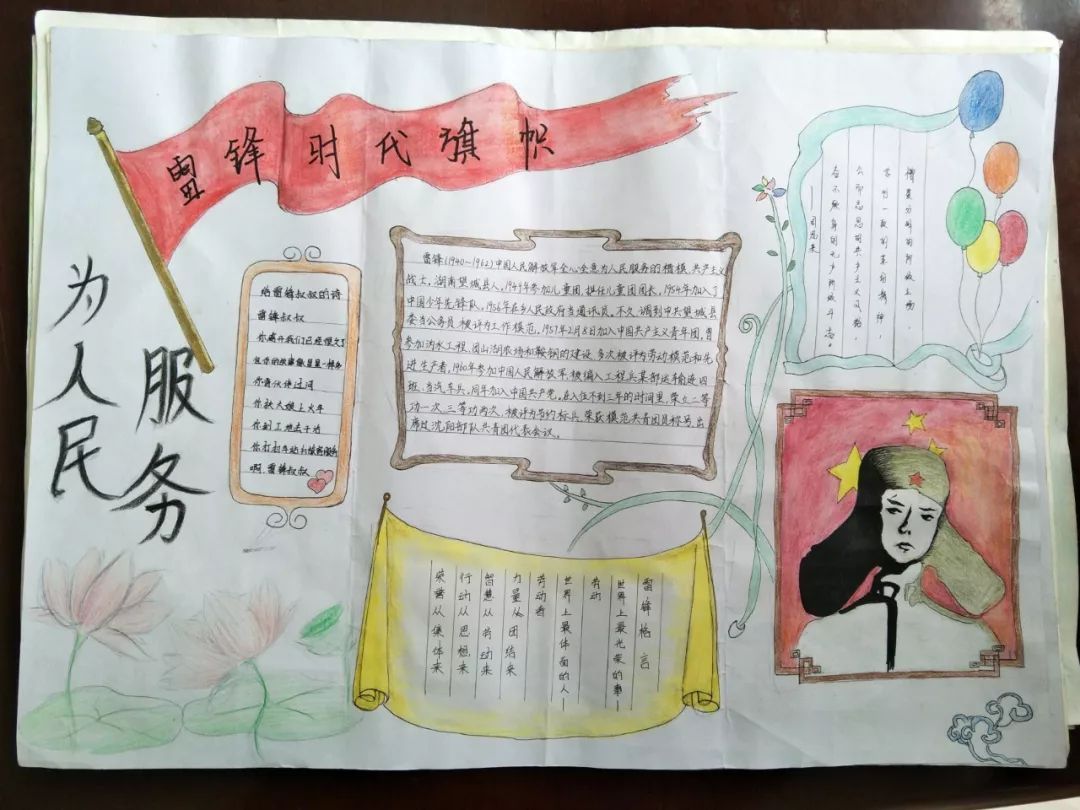 雷锋时代旗帜
为人民
服务
给雷锋叔叔的诗
雷锋叔叔
你离开我们已经很久了
但你的故事像星星一样多
你背伙伴过河
你扶大娘上火车
你到工地去干活
你打扫车 和旅客服务
啊,雷锋叔叔
雷锋(1940～1962)中国人民解放军全心全意为人民服务的楷模、共产主义
战士,湖南望城县人,1949年参加儿童团,担任儿童团团长,1954年加入了
中国少年先锋队,1956年在乡人民政府当通讯员,不久,调到中共望城县
委当公务员,被评为工作模范,1957年2月8日加入中国共产主义青年团,曾
参加沩水工程、团山湖农场和鞍钢的建设,多次被评为劳动模范和先
进生产者,1960年参加中国人民解放军,被编入工程兵某部运输连四
班,当汽车兵,同年加入中国共产党,在入伍不到三年的时间里,荣立二等
功一次,三等功两次,被评为节约标兵,荣获模范共青团员称号,出
席过沈阳部队共青团代表会议。
憎爱分明的阶级立场,
言行一致的革命精神,
公而忘私的共产主义风格,
奋不顾身的无产阶级斗志。
——周恩来
雷锋格言
世界上最光荣的事—
劳动
世界上最体面的人—
劳动者
力量从团结来
智慧从劳动来
行动从思想来
荣誉从集体来